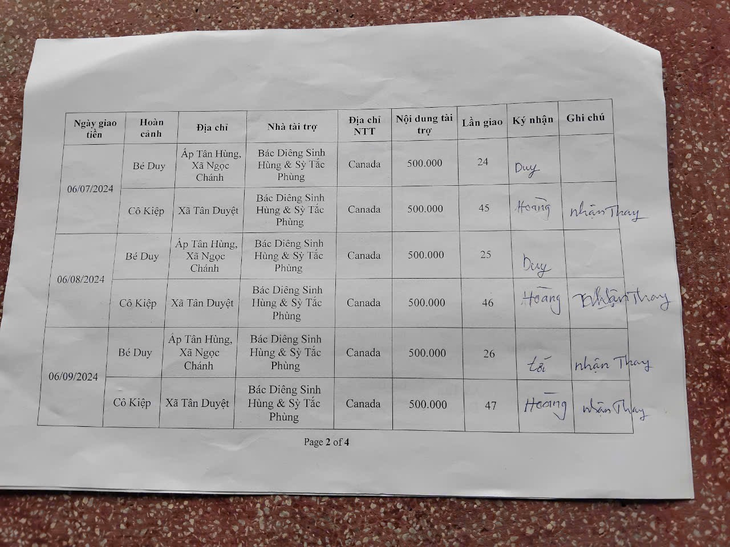 Ngày giao tiền Hoàn cảnh Địa chỉ Nhà tài trợ Địa chỉ NTT Nội dung tài trợ Lần giao Ký nhận Ghi chú
06/07/2024
Bé Duy Ấp Tân Hùng, Xã Ngọc Chánh Bác Diêng Sinh Hùng & Sỳ Tắc Phùng Canada 500.000 24 Duy
Cô Kiệp Xã Tân Duyệt Bác Diêng Sinh Hùng & Sỳ Tắc Phùng Canada 500.000 45 Hoàng nhận Thay
06/08/2024
Bé Duy Ấp Tân Hùng, Xã Ngọc Chánh Bác Diêng Sinh Hùng & Sỳ Tắc Phùng Canada 500.000 25 Duy
Cô Kiệp Xã Tân Duyệt Bác Diêng Sinh Hùng & Sỳ Tắc Phùng Canada 500.000 46 Hoàng nhận Thay
06/09/2024
Bé Duy Ấp Tân Hùng, Xã Ngọc Chánh Bác Diêng Sinh Hùng & Sỳ Tắc Phùng Canada 500.000 26 nhận Thay
Cô Kiệp Xã Tân Duyệt Bác Diêng Sinh Hùng & Sỳ Tắc Phùng Canada 500.000 47 Hoàng nhận Thay
Page 2 of 4